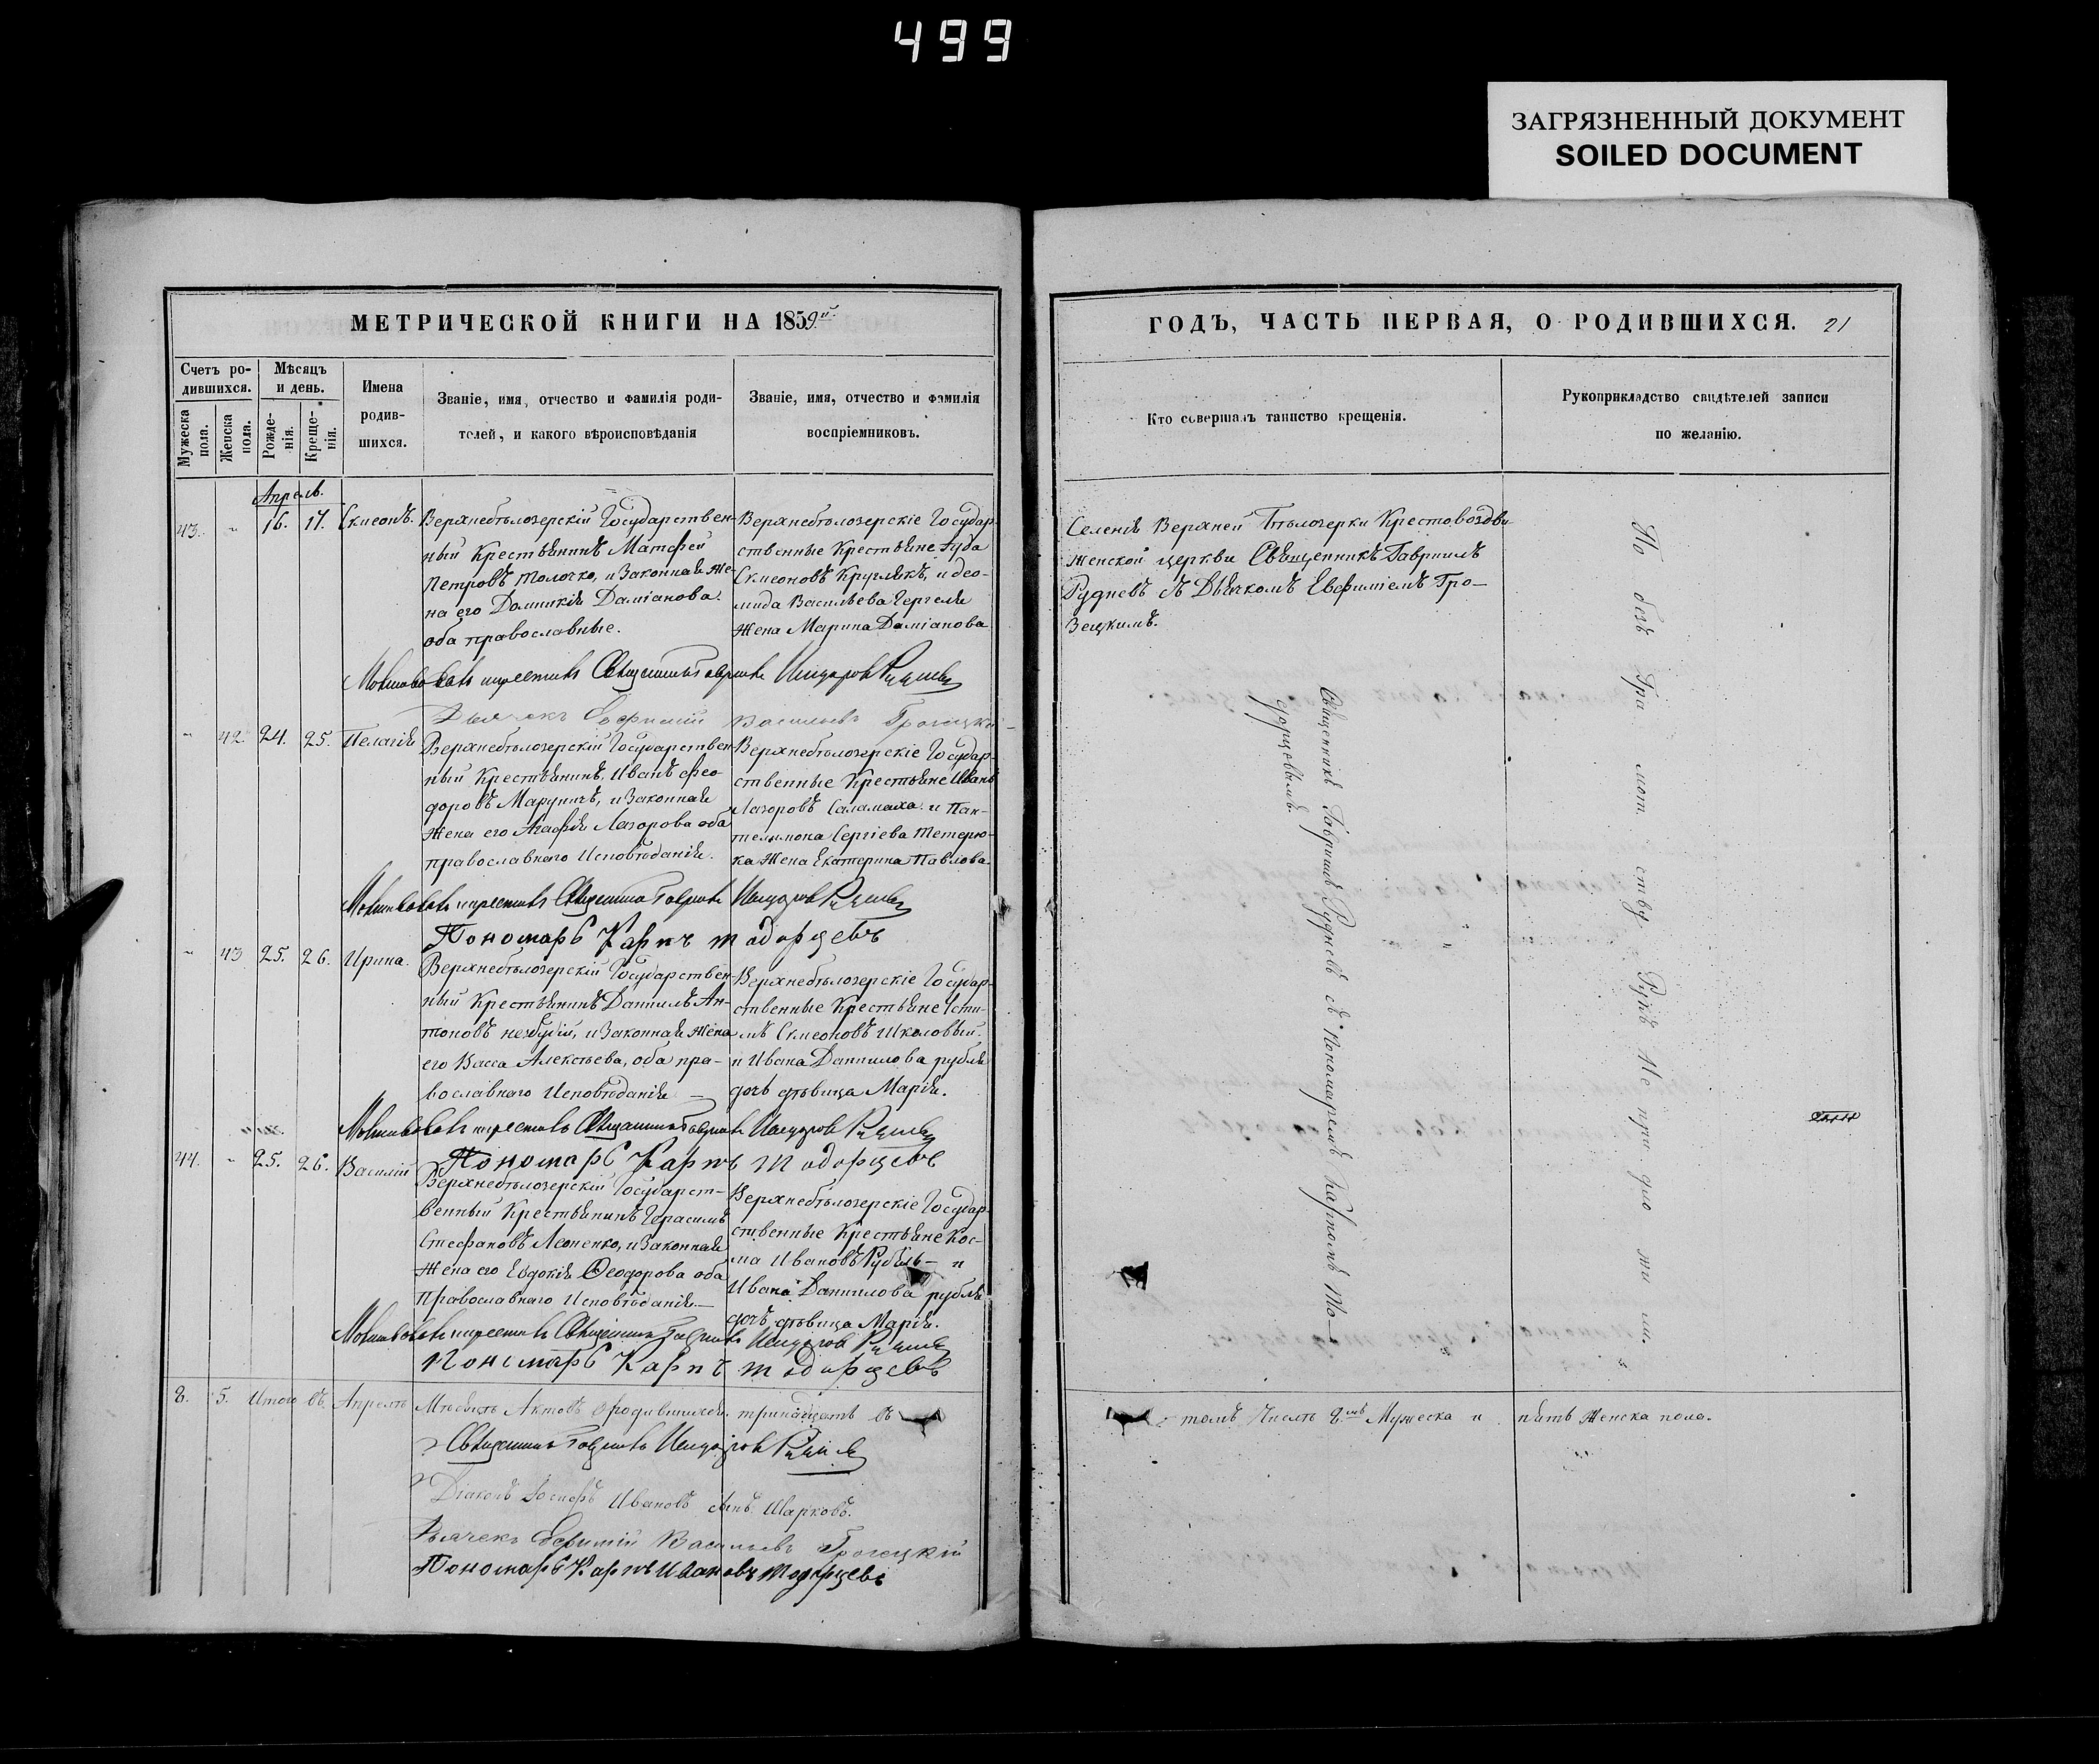 499
ЗАГРЯЗНЕННЫЙ ДОКУМЕНТ
SOILED DOCUMENT
МЕТРИЧЕСКОЙ КНИГИ НА 1859й
Счетъ ро-
дившихся.
Мужеска пола.
Женска пола.
Мѣсяцъ
и день.
Рожде-
нія.
Креще-
нія.
Имена
родив-
шихся.
Званіе, имя, отчество и фамилія роди-
телей, и какого вѣроисповѣданія
Званіе, имя, отчество и фамилія
воспріемниковъ.
Апрель.
43. " 16. 17. Симеонъ.
Верхнебѣлозерскій Государствен-
ный Крестьянинъ Матфей
Петровъ Толочко, и Законная Же-
на его Домникія Даміанова
оба православные.
Верхнебѣлозерскіе Государ-
ственные Крестьяне
Симеоновъ Круглякъ, и Део-
мида Васильева
Жена Марина Даміанова
Молитвовалъ и крестилъ Священникъ Гавріилъ Рудневъ
Дьячекъ Евфимій Васильевъ Грозецкій
" 42. 24. 25. Пелагія
Верхнебѣлозерскій Государствен-
ный Крестьянинъ, Иванъ Фео-
доровъ Маруничъ, и Законная
Жена его Агафія Лазорова оба
православнаго Исповѣданія.
Верхнебѣлозерскіе Государ-
ственные Крестьяне Иванъ
Лазоровъ Саламаха и Пан-
телимона Сергіева Тетерю-
ка Жена Екатерина Павлова
Молитвовалъ и крестилъ Священникъ Гавріилъ Рудневъ
Пономарь Карпъ Тодорцевъ
" 43 25. 26. Ирина.
Верхнебѣлозерскій Государствен-
ный Крестьянинъ Даниилъ Ан-
тоновъ и Законная Жена
его Васса Алексѣева, оба пра-
вославнаго Исповѣданія —
Верхнебѣлозерскіе Государ-
ственные Крестьяне
Симеоновъ Школовый
и Ивана Даниилова рубля
дочь дѣвица Марія.
Молитвовалъ и крестилъ Священникъ Гавріилъ Рудневъ
Пономарь Карпъ Тодорцевъ
44. " 25. 26. Василій
Верхнебѣлозерскій Государст-
венный Крестьянинъ Герасимъ
Стефановъ Леоненко, и Законная
Жена его Евдокія Ѳеодорова оба
Православнаго Исповѣданія —
Верхнебѣлозерскіе Государ-
ственные Крестьяне Кос-
ма Ивановъ Рубль — и
Ивана Даниилова рубля
дочь дѣвица Марія.
Молитвовалъ и крестилъ Священникъ Гавріилъ Рудневъ
Пономарь Карпъ Тодорцевъ
8. 5. Итого въ Апрелѣ Мѣсяцѣ Актовъ о родившихся тринадцать въ
Священникъ Гавріилъ Рудневъ
Діаконъ Ивановъ сынъ Шарковъ.
Дьячекъ Евфимій Васильевъ Грозецкій
Пономарь Карпъ Ивановъ Тодорцевъ
ГОДЪ, ЧАСТЬ ПЕРВАЯ, О РОДИВШИХСЯ. 21
Кто совершалъ таинство крещенія.
Рукоприкладство свидѣтелей записи
по желанію.
Селенія Верхней Бѣлозерки Крестовоздви-
женской церкви Священникъ Гавріилъ
Рудневъ съ Дьячкомъ Евфиміемъ Гро-
зецкимъ.
Священникъ Гавріилъ Рудневъ съ Пономаремъ Карпомъ То-
дорцевымъ.
По безъ Гра мот ству Рукъ Не при дло жи ли
томъ Числѣ 8мь Мужеска и пять Женска пола.